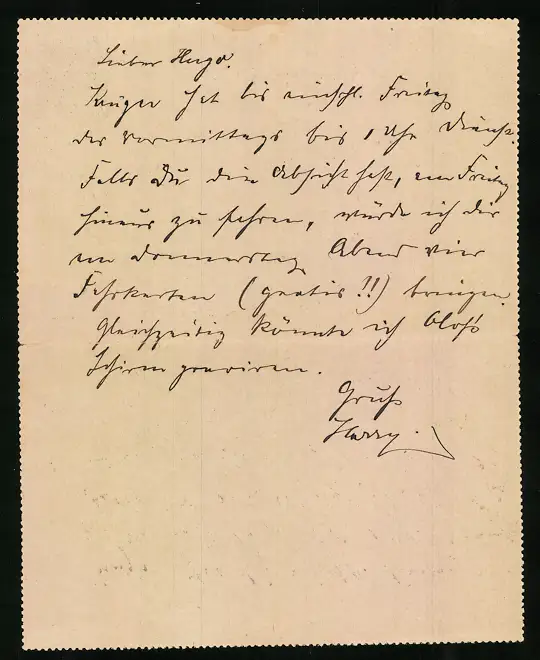 Lieber Hugo.
Krüger hat bis einschl. Freitag
des Vormittags bis 1 Uhr Dienst.
Falls Du die Absicht hast, am Freitag
hinaus zu fahren, würde ich Dir
am Donnerstag Abend vier
Fahrkarten (gratis!!) bringen.
Gleichzeitig könnte ich
Schirm graviren.
Gruß
Harry.